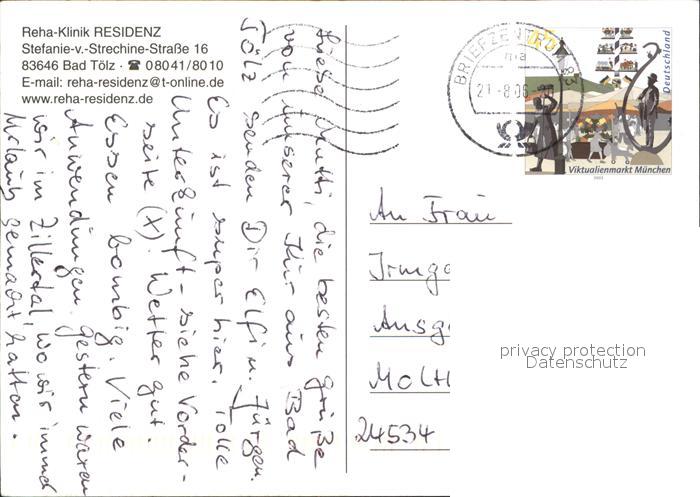 Reha-Klinik RESIDENZ
Stefanie-v.-Strechine-Straße 16
83646 Bad Tölz · ☎ 08041/8010
E-mail: reha-residenz@t-online.de
www.reha-residenz.de
Liebe Mutti, die besten Grüße
von unserer Kur aus Bad
Tölz senden Dir Elfi u. Jürgen.
Es ist super hier. Tolle
Unterkunft - siehe Vorder-
seite (X). Wetter gut.
Essen bombig. Viele
Anwendungen. Gestern waren
wir im Zillertal, wo wir immer
Urlaub gemacht hatten.
BRIEFZENTRUM 83
ma
21-8.06
Deutschland
Viktualienmarkt München
An Frau
Irmga
Ansga
Molt
24534
privacy protection
Datenschutz